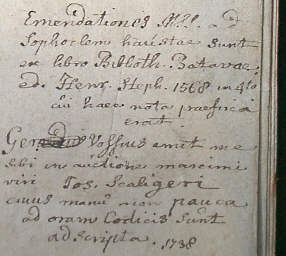 Emendationes MSS. ad
Sophoclem haustae sunt
ex libro Biblioth. Batavae
ed. Henr. Steph. 1568 in 4to
cui haec nota praefixa
erat.
Vossius emit me
sibi in auctione maximi
viri Jos. Scaligeri
cuius manu non pauca
ad oram Codicis sunt
adscripta. 1738